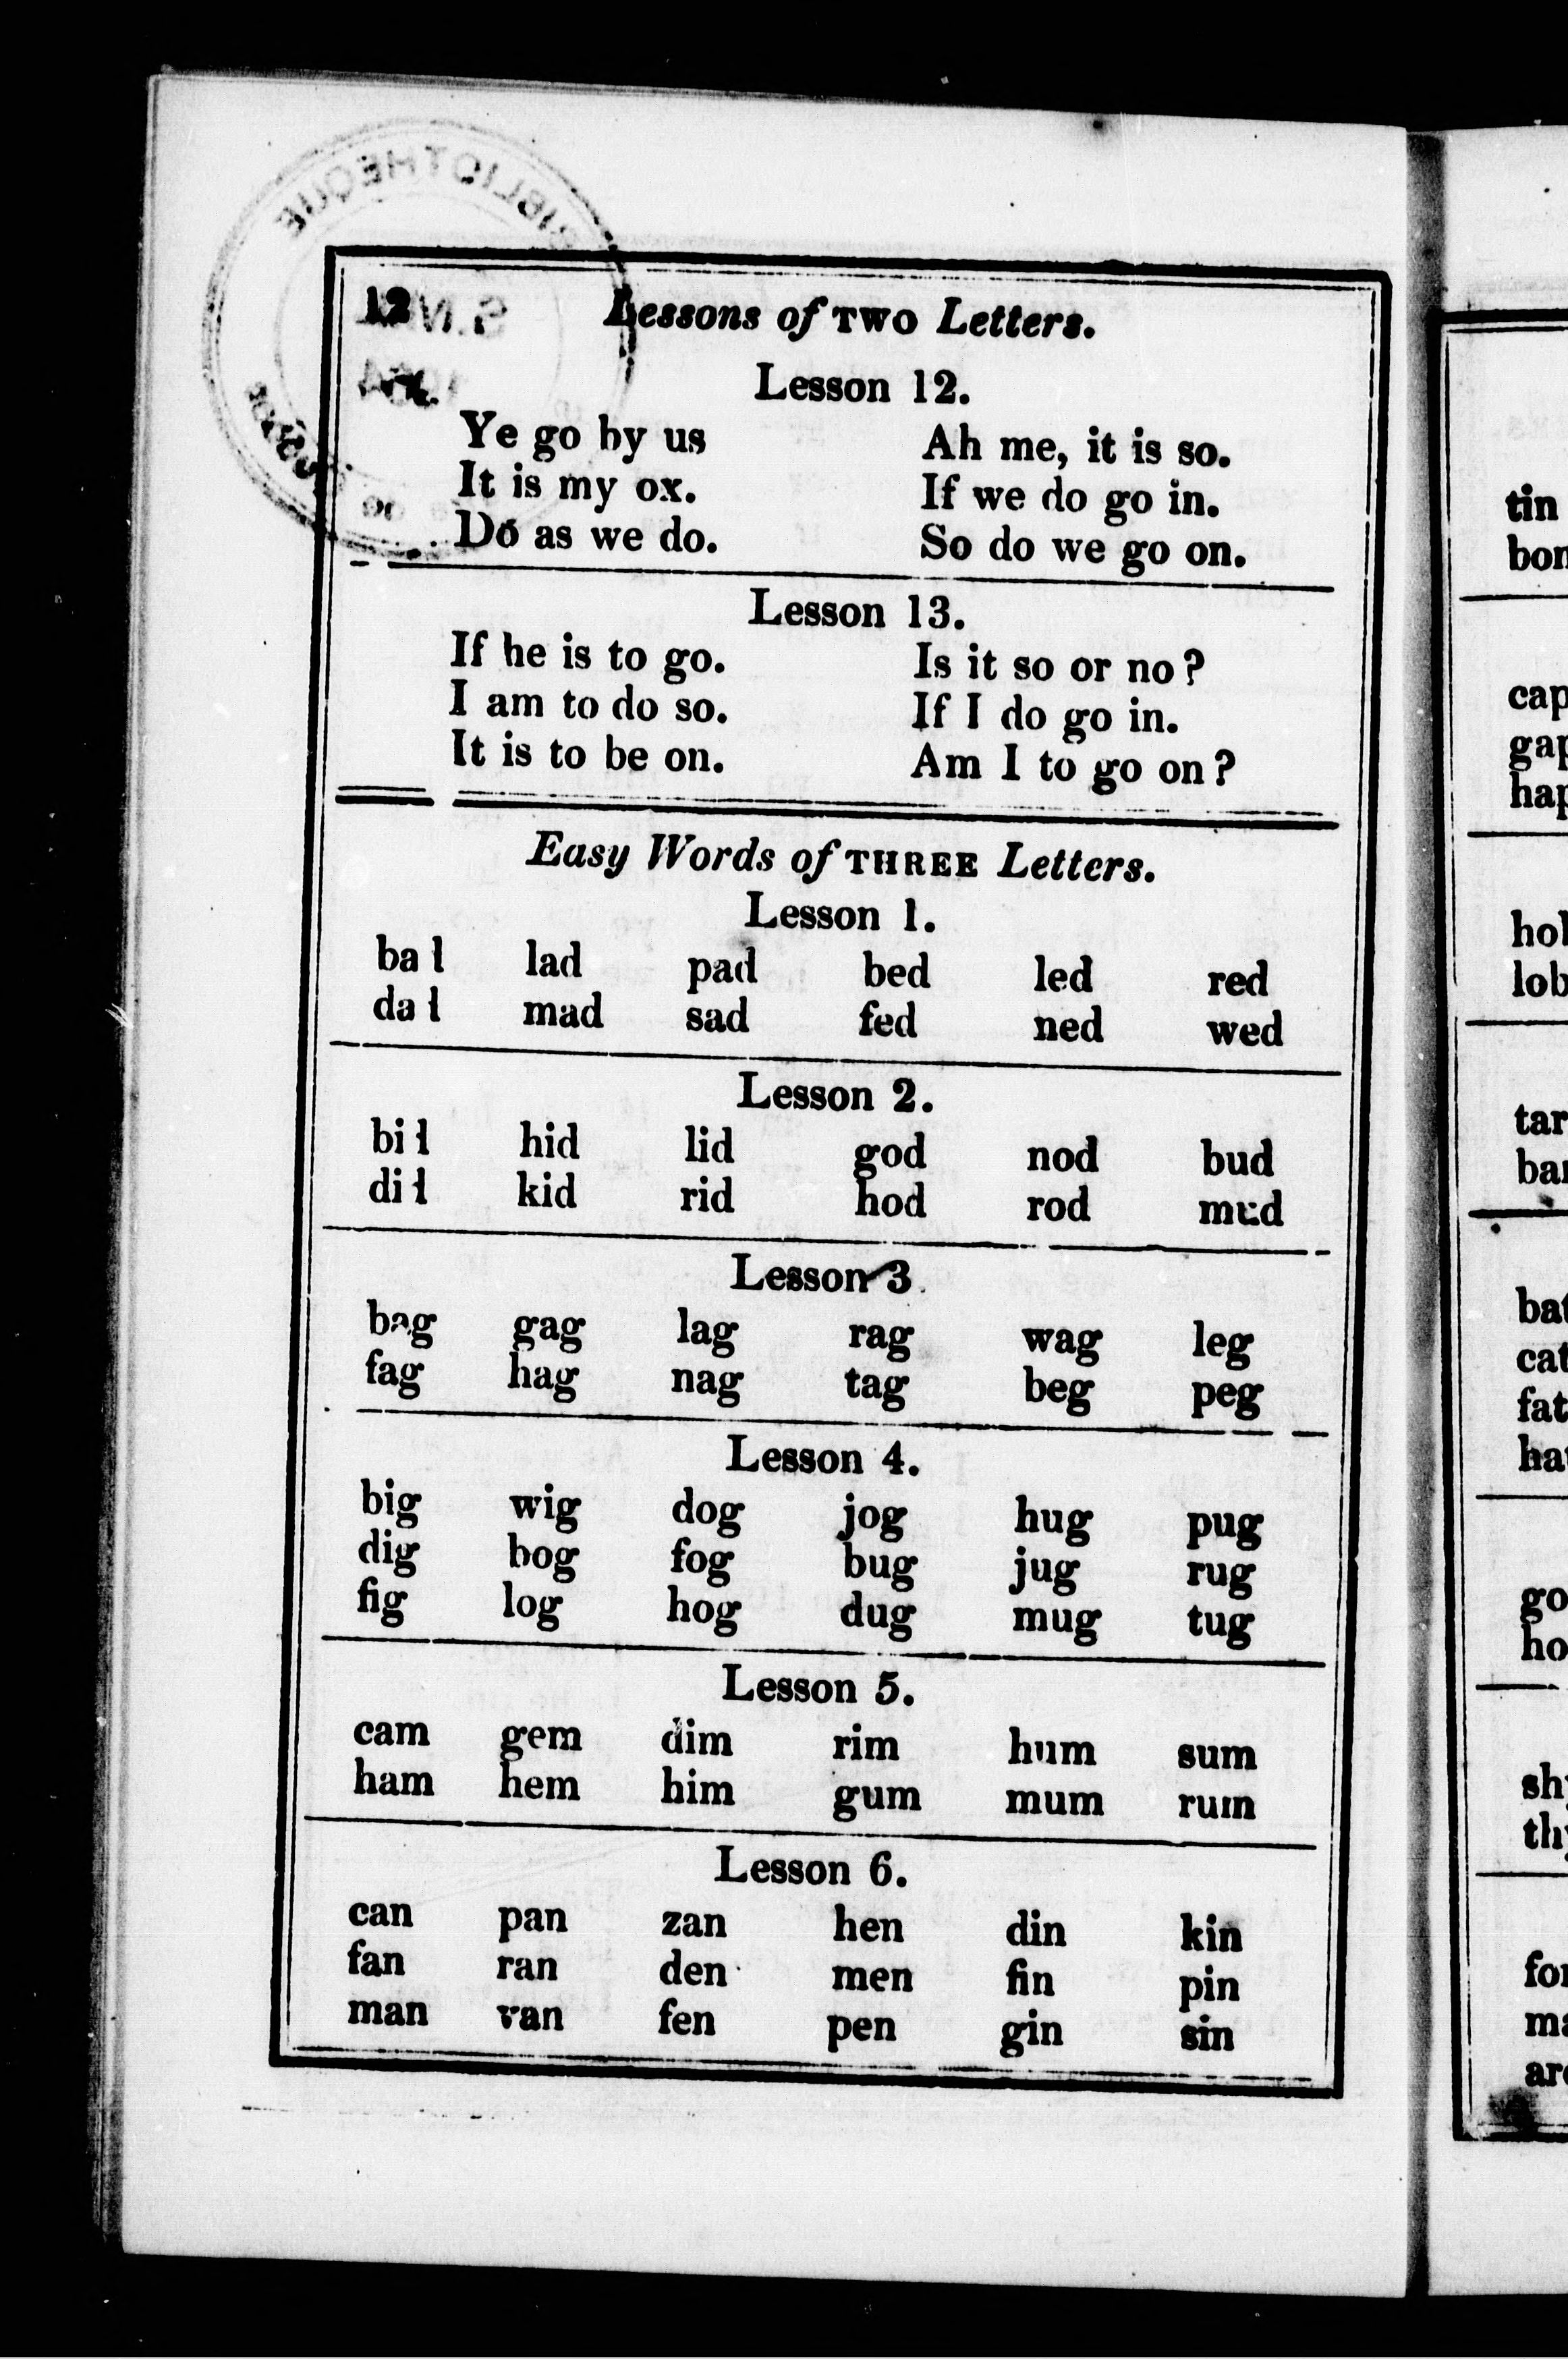 12 Lessons of TWO Letters.
Lesson 12.
Ye go by us Ah me, it is so.
It is my ox. If we do go in.
Do as we do. So do we go on.
Lesson 13.
If he is to go. Is it so or no?
I am to do so. If I do go in.
It is to be on. Am I to go on?
Easy Words of THREE Letters.
Lesson 1.
bad lad pad bed led red
dad mad sad fed ned wed
Lesson 2.
bid hid lid god nod bud
did kid rid hod rod mud
Lesson 3.
bag gag lag rag wag leg
fag hag nag tag beg peg
Lesson 4.
big wig dog jog hug pug
dig bog fog bug jug rug
fig log hog dug mug tug
Lesson 5.
cam gem dim rim hum sum
ham hem him gum mum rum
Lesson 6.
can pan zan hen din kin
fan ran den men fin pin
man van fen pen gin sin
BIBLIOTHEQUE
tin